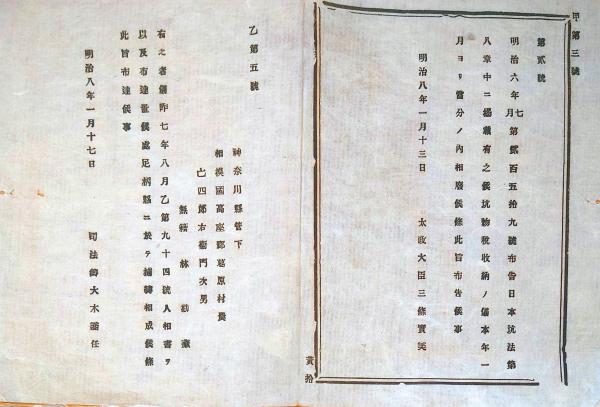 甲第三號
第貳號
明治六年七月第貳百五拾九號布告日本坑法第
八章中ニ掲載有之候坑物税收納ノ儀本年一
月ヨリ當分ノ内相廢候條此旨布告候事
明治八年一月十三日
太政大臣三條實美
黄拾
乙第五號
神奈川縣管下
相模國高座郡葛原村農
亡四郎右衞門次男
無籍 林
右之者儀昨七年八月乙第九十四號人相書ヲ
以及布達置候處足柄縣ニ於テ捕縛相成候條
此旨布達候事
明治八年一月十七日
司法卿大木喬任